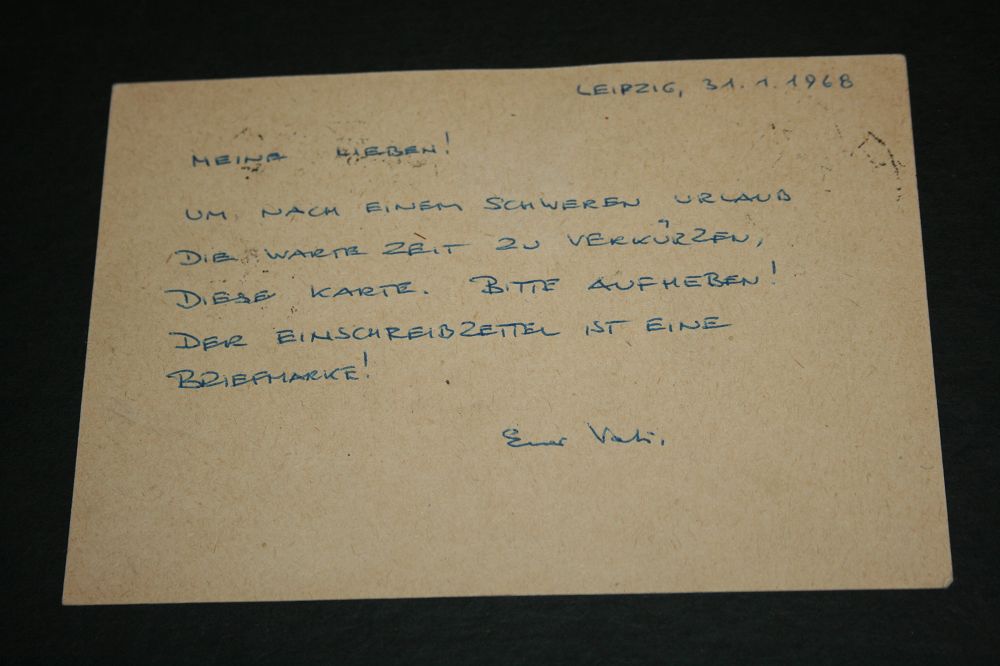 LEIPZIG, 31.1.1968
MEINE LIEBEN!
UM NACH EINEM SCHWEREN URLAUB
DIE WARTE ZEIT ZU VERKÜRZEN,
DIESE KARTE. BITTE AUFHEBEN!
DER EINSCHREIBZETTEL IST EINE
BRIEFMARKE!
Euer Vati.